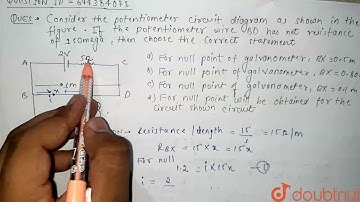 QUESTION ID = 644384073
Ques → Consider the potentiometer circuit diagram as shown in the
figure. If the potentiometer wire BD has net resistance
of 15 omega, then choose the correct statement
2V
5Ω
A
C
1m
B
D
a) For null point of galvanometer, BX = 0.5m
b) For null point of galvanometer, BX = 0.8
c) For null point of galvanometer, BX = 0.1m
d) Null point will be obtained for the
circuit shown circuit
Resistance / length = 15/1 = 15Ω/m
RBX = 15 × x = 15x
For null
1.2 = i × 15x —①
i = 2
doubtnut